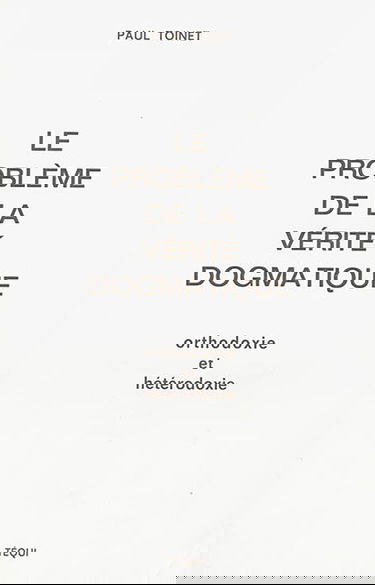 PAUL TOINET
LE
PROBLÈME
DE LA
VÉRITÉ
DOGMATIQUE
orthodoxie
et
hétérodoxie
TÉQUI